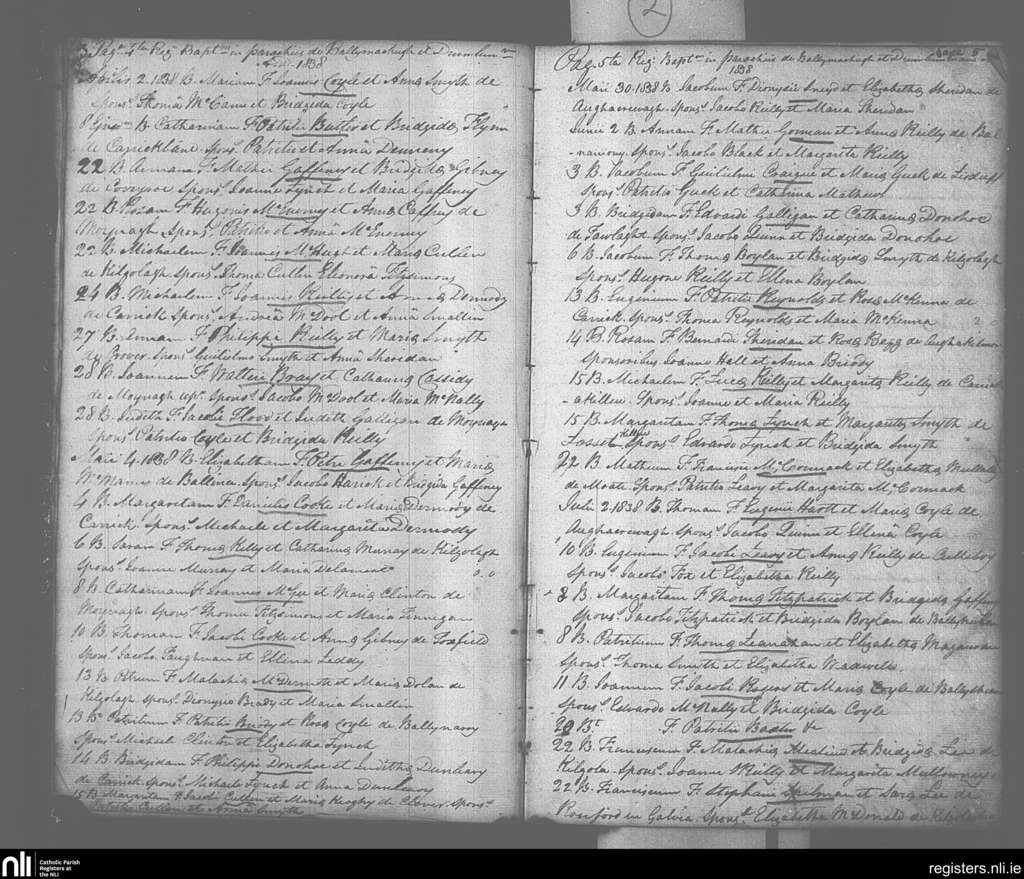 2
Pag. 4ta Reg. Bapt.m in parochiis de Ballymachugh et Drumlum.n
1838
Aprilis 2. 1838 B. Mariam F. Joannis Coyle et Anna Smyth de
Spons.s Thoma McCann et Bridgida Coyle
8 B. Catharinam F. Patritii Butler et Bridgida Flynn
de Carrickbane Spons. Patritio et Anna
22 B. Annam F. Mathei Gaffeney et Bridgida Gibney
de Spons.s Joanne Lynch et Maria Gaffeney
22 B. Rosam F. Hugonis McEnerny et Anna Caffrey de
Moynagh Spons.s Patritio et Anna McEnerny
22 B. Michaelem F. Joannis McHugh et Maria Cullen
de Kilgolagh Spons.s Thoma Cullin Elenora Fitzsimons
24 B. Michaelem F. Joannis Reilly et Anna Dermody
de Carrick Spons.s Andrea McDool et Anna Smallin
27 B. Annam F. Philippi Reilly et Maria Smyth
de Spons.s Guilielmo Smyth et Anna Sheridan
28 B. Joannem F. Walteri Bray et Catharina Cassidy
de Moynagh upr. Spons.s Jacobo McDool et Maria McNally
28 B. Judith F. Jacobi Floor et Judith Galligan de Moynagh
Spons.s Patritio Coyle et Bridgida Reilly
Maii 4. 1838 B. Elizabetham F. Petri Gaffeney et Maria
McManus de Ballina Spons.s Jacobo Harick et Brigida Gaffney
4 B. Margaritam F. Danielis Cooke et Maria Dermody de
Carrick Spons.s Michaele et Margarita Dermody
6 B. Saram F. Thoma Kelly et Catharina Murray de Kilgolagh
Spons.s Joanne Murray et Maria Delament
8 B. Catharinam F. Joannis McGee et Maria Clinton de
Moynagh Spons.s Thoma Fitzsimons et Maria Finnegan
10 B. Thomam F. Jacobi Cooke et Anna Gibney de Foxfield
Spons.s Jacobo Faughnan et Ellena Leddy
13 B. Petrum F. Malachia McDermott et Maria Dolan de
Kilgolagh Spons.s Dionysio Brady et Maria Smallin
13 B. Patritium F. Patritii Briody et Rosa Coyle de Ballynarry
Spons.s Michael Clinton et Elizabetha Lynch
14 B. Bridgidam F. Philippi Donohoe et Juditha Dunleavy
de Carrick Spons.s Michaele Lynch et Anna Dunleavy
15 B. Margarita F. Jacobi Cullen et Maria Keighry de Clover Spons.s
Cullen et Anna Smyth
Page 5
Pag. 5ta Reg. Bapt.m in parochiis de Ballymachugh et
1838
Maii 30. 1838 B. Jacobum F. Dionysii Sneyd et Elizabetha Sheridan de
Aughacreevagh Spons.s Jacobo Reilly et Maria Sheridan
Junii 2 B. Annam F. Mathei Gorman et Anna Reilly de Bal-
-nariory. Spons.s Jacobo Black et Margarita Reilly
3 B. Jacobum F. Guilielmi Craigue et Maria Gueck de Lisduff
Spons.s Patritio Gueck et Catharina Mathews
3 B. Bridgidam F. Edwardi Galligan et Catharina Donohoe
de Tawlaght Spons.s Jacobo Quinn et Bridgida Donohoe
6 B. Jacobum F. Thoma Boylan et Bridgida Smyth de Kilgolagh
Spons.s Hugone Reilly et Ellena Boylan
13 B. Eugenium F. Patritii Reynolds et Rosa McKenna de
Carrick. Spons.s Thoma Reynolds et Maria McKenna
14 B. Rosam F. Bernardi Sheridan et Rosa
Sponsoribus Joanne Hall et Anna Briody
15 B. Michaelem F. Luca Reilly et Margarita Reilly de
-akilleu. Spons.s Joanne et Maria Reilly
15 B. Margaritam F. Thoma Lynch et Margarita Smyth de
Fosset Spons.s Edwardo Lynch et Bridgida Smyth
22 B. Matheum F. Francisci McCormack et Elizabetha
de Moate Spons.s Patritio Leavy et Margarita McCormack
Julii 2. 1838 B. Thomam F. Eugenii Hartt et Maria Coyle de
Aughacreevagh Spons.s Jacobo Quinn et Ellena Coyle
10 B. Eugenium F. Jacobi Leavy et Anna Reilly de Culleboy
Spons.s Jacobo Fox et Elizabetha Reilly
8 B. Margaritam F. Thoma Fitzpatrick et Bridgida
Spons.s Jacobo Fitzpatrick et Bridgida Boylan de
8 B. Patritium F. Thoma Leanahan et Elizabetha Magauran
Spons.s Thoma Smith et Elizabetha
11 B. Joannem F. Jacobi Rogers et Maria Coyle de
Spons.s Edwardo McNally et Bridgida Coyle
20 B.t F. Patritii Baxter &
22 B. Franciscum F. Malachia et Bridgida Lee de
Kilgola. Spons.s Joanne Reilly et Margarita Mullowney
22 B. Franciscum F. Stephani Spelman et Sara Lee de
Roseford in Galvia. Spons.s Elizabetha McDonald de
nli
Catholic Parish
Registers at
the NLI
registers.nli.ie